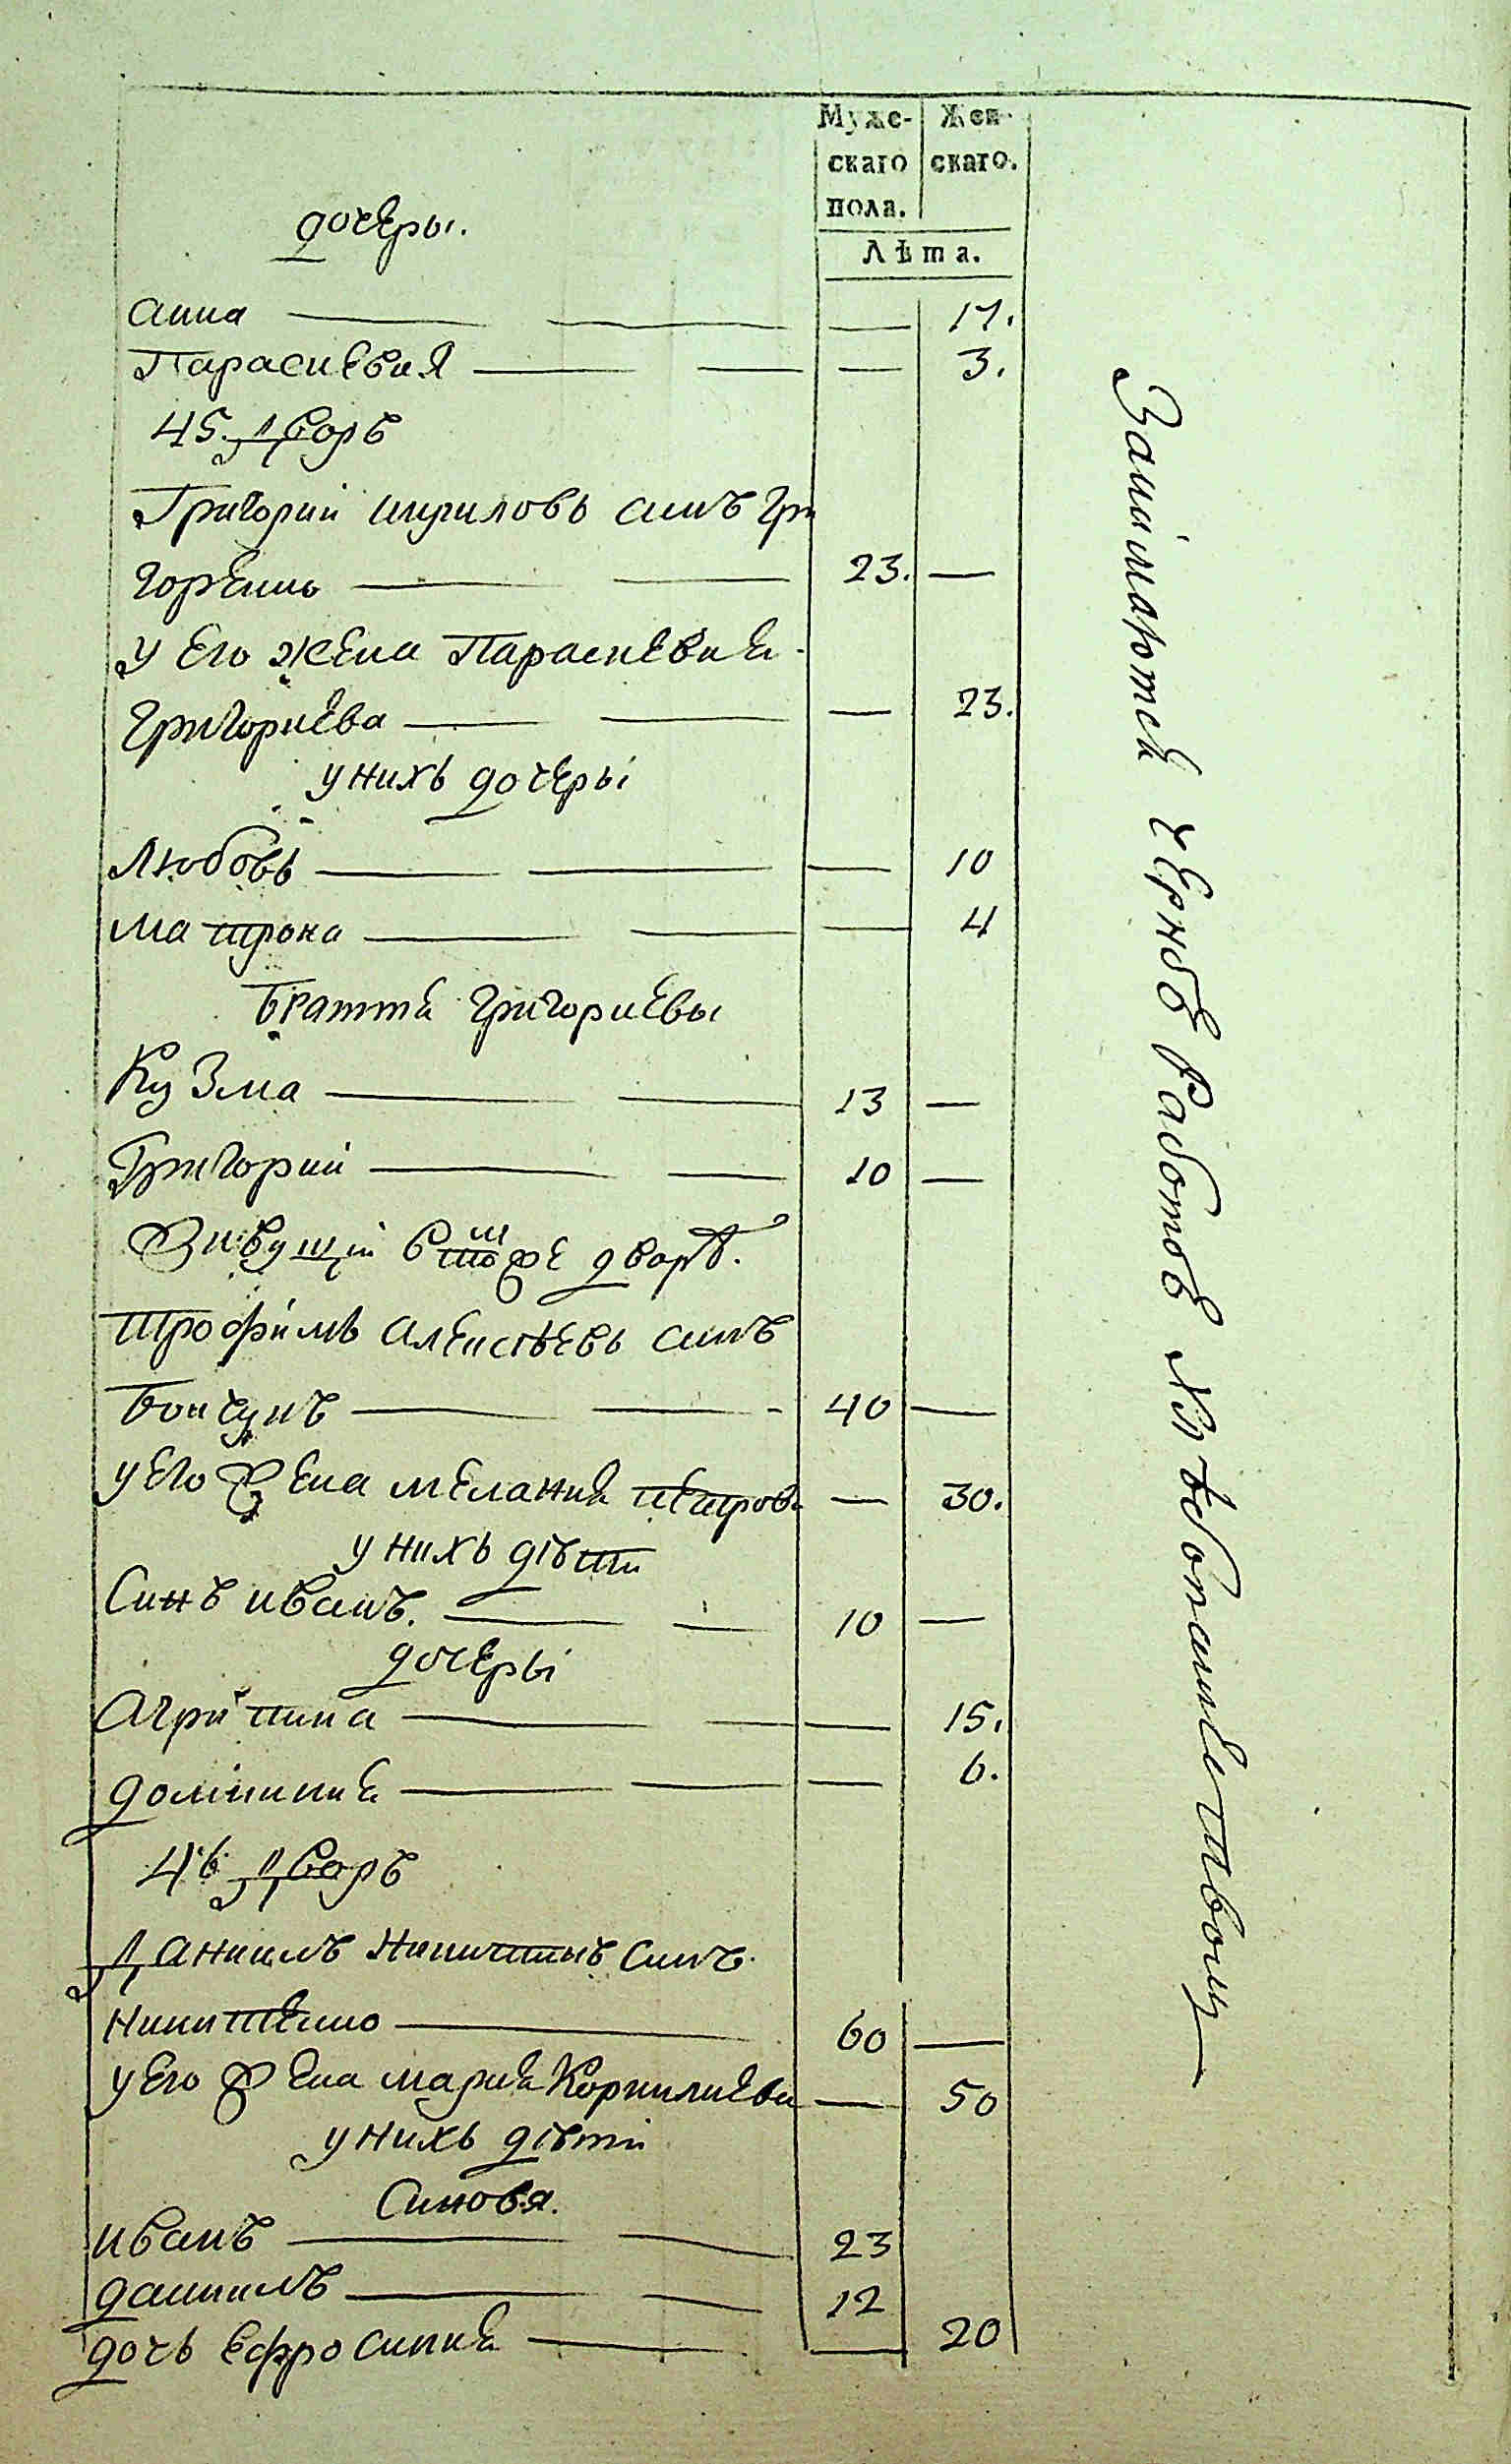 Муже-
скаго
пола.
Жен-
скаго.
Лѣта.
дочеры.
анна 17.
Параскевия 3.
45 Дворъ
Григорий кириловъ синъ Гри
горенко 23.
у его жена Параскевия
Григориева 23.
у нихъ дочеры
Любовь 10
матрона 4
Братия Григориевы
Кузма 13
Григорий 10
Живущии в томже дворѣ.
трофимъ алексѣевъ синъ
40
у его жена мелания петров. 30.
у нихъ дѣти
Синъ иванъ. 10
дочеры
Агрипина 15.
домникия 6.
46 Дворъ
Даниилъ никитынъ синъ
никитенко 60
у его жена мария Корнилиева 50
у нихъ дѣти
Синовя.
иванъ 23
даниилъ 12
дочь Ефросиния 20
Занимаются черною работою хлѣбопашествомъ